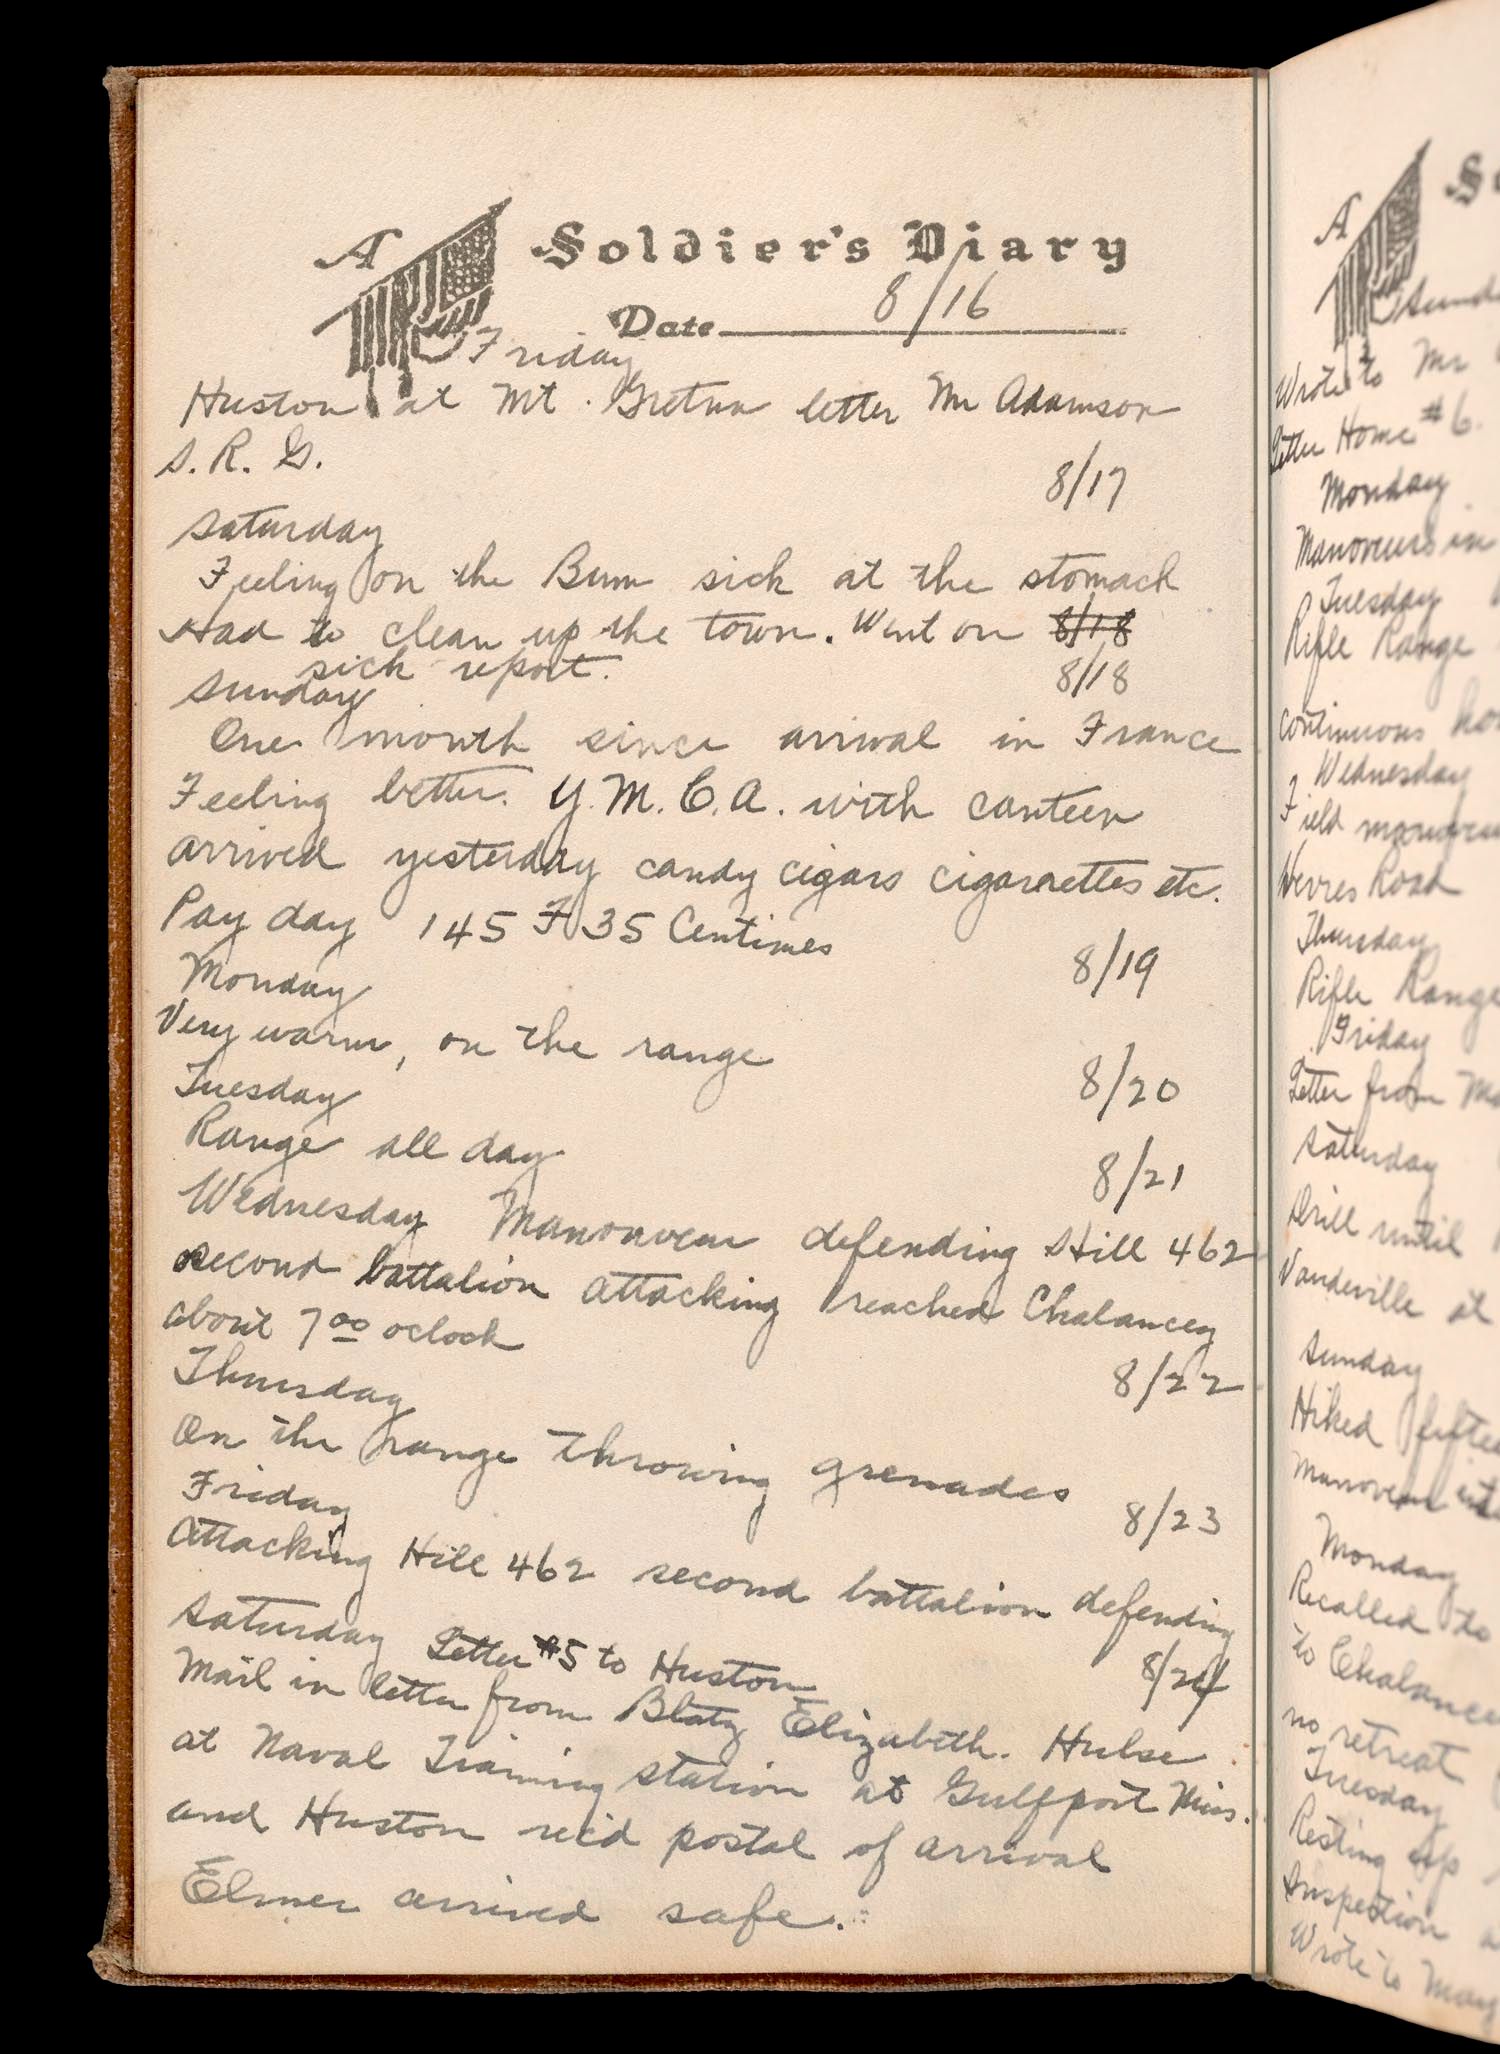 A Soldier's Diary
Date 8/16
Friday
Huston at Mt. Gretna letter Mr Adamson
S. R. G.
8/17
Saturday
Feeling on the Bum sick at the stomach
Had to clean up the town. Went on 8/18
sick report.
8/18
Sunday
One month since arrival in France
Feeling better. Y.M.C.A. with canteen
arrived yesterday candy cigars cigararettes etc.
Pay day 145 F 35 Centimes
8/19
Monday
Very warm, on the range
8/20
Tuesday
Range all day
8/21
Wednesday Manouveur defending Hill 462
second battalion attacking reached Chalancey
about 7 00 oclock
8/22
Thursday
On the range throwing grenades
8/23
Friday
Attacking Hill 462 second battalion defending
8/24
Saturday Letter #5 to Huston
Mail in letter from Blatz Elizabeth. Hulse
at Naval Training station at Gulfport Miss.
and Huston rec'd postal of arrival
Elmer arrived safe.
A
Sunday
Wrote to Mr
Letter Home #6.
Monday
Manoveurs in
Tuesday
Rifle Range
continuous
Wednesday
Field
Road
Thursday
Rifle Range
Friday
Letter from
Saturday
Drill until
Vaudeville at
Sunday
Hiked
Monday
Recalled to
to
no retreat
Tuesday
Resting up
Inspection
Wrote to